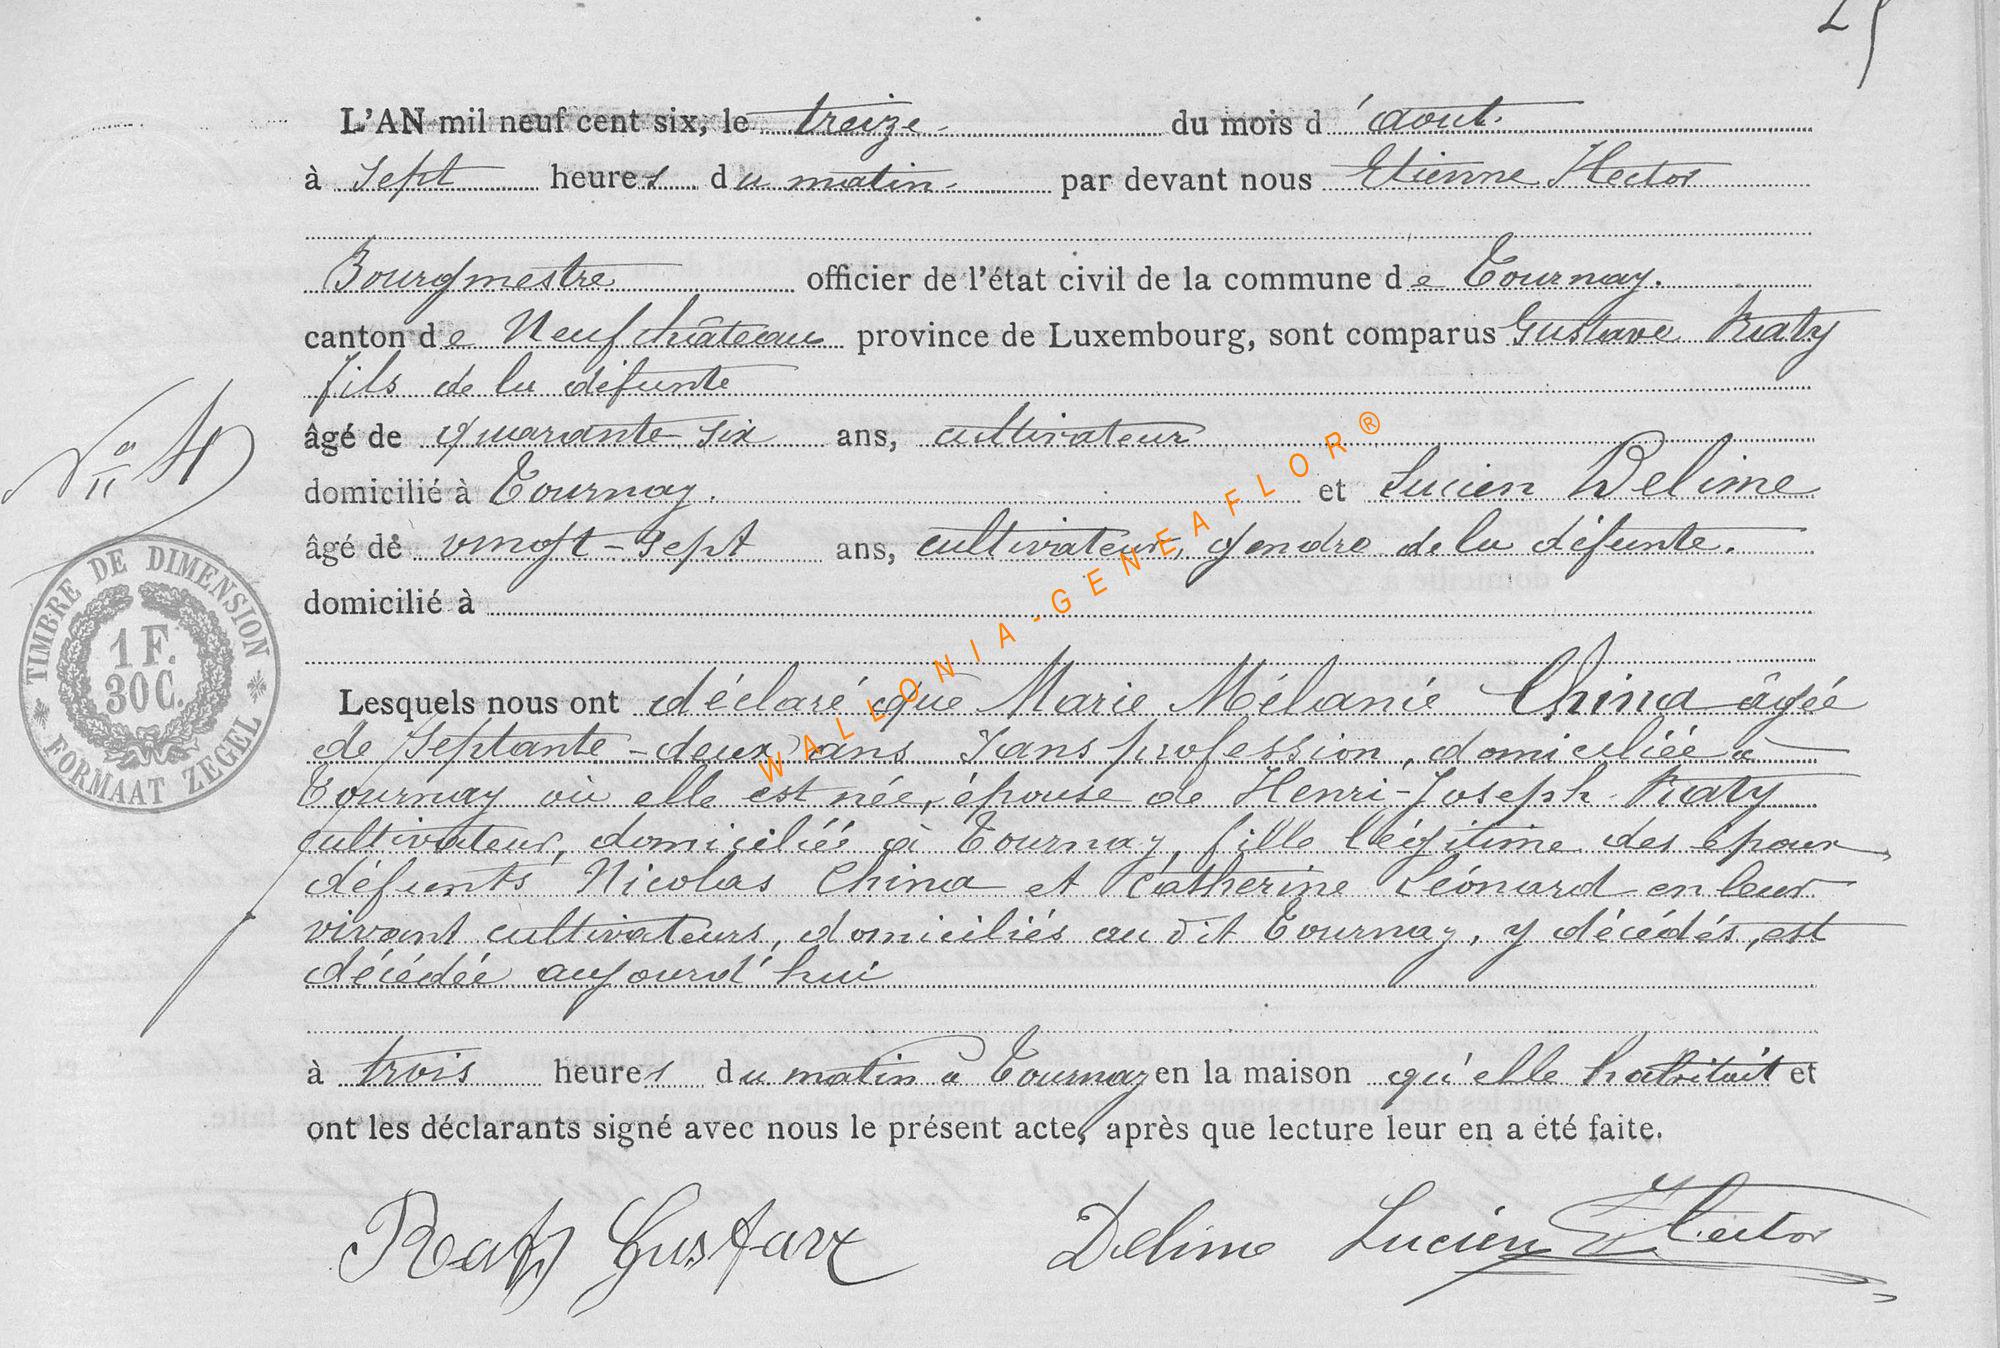 25
L'AN mil neuf cent six, le treize du mois d'août
à sept heures du matin par devant nous Etienne Hector
Bourgmestre officier de l'état civil de la commune de Tournay.
canton de Neufchâteau province de Luxembourg, sont comparus Gustave Raty
fils de la défunte
âgé de quarante-six ans, cultivateur
domicilié à Tournay. et Lucien Delime
N° 4
âgé de vingt-sept ans, cultivateur, gendre de la défunte.
domicilié à
TIMBRE DE DIMENSION
1 F.
30 C.
FORMAAT ZEGEL
Lesquels nous ont déclaré que Marie Mélanie China âgée
de septante-deux ans sans profession, domiciliée à
Tournay où elle est née, épouse de Henri-Joseph Raty
cultivateur, domiciliés à Tournay, fille légitime des époux
défunts Nicolas China et Catherine Léonard en leur
vivant cultivateurs, domiciliés au dit Tournay, y décédés, est
décédée aujourd'hui
à trois heures du matin à Tournay en la maison qu'elle habitait et
ont les déclarants signé avec nous le présent acte, après que lecture leur en a été faite.
Raty Gustave Delime Lucien E Hector
WALLONIA-GENEAFLOR®